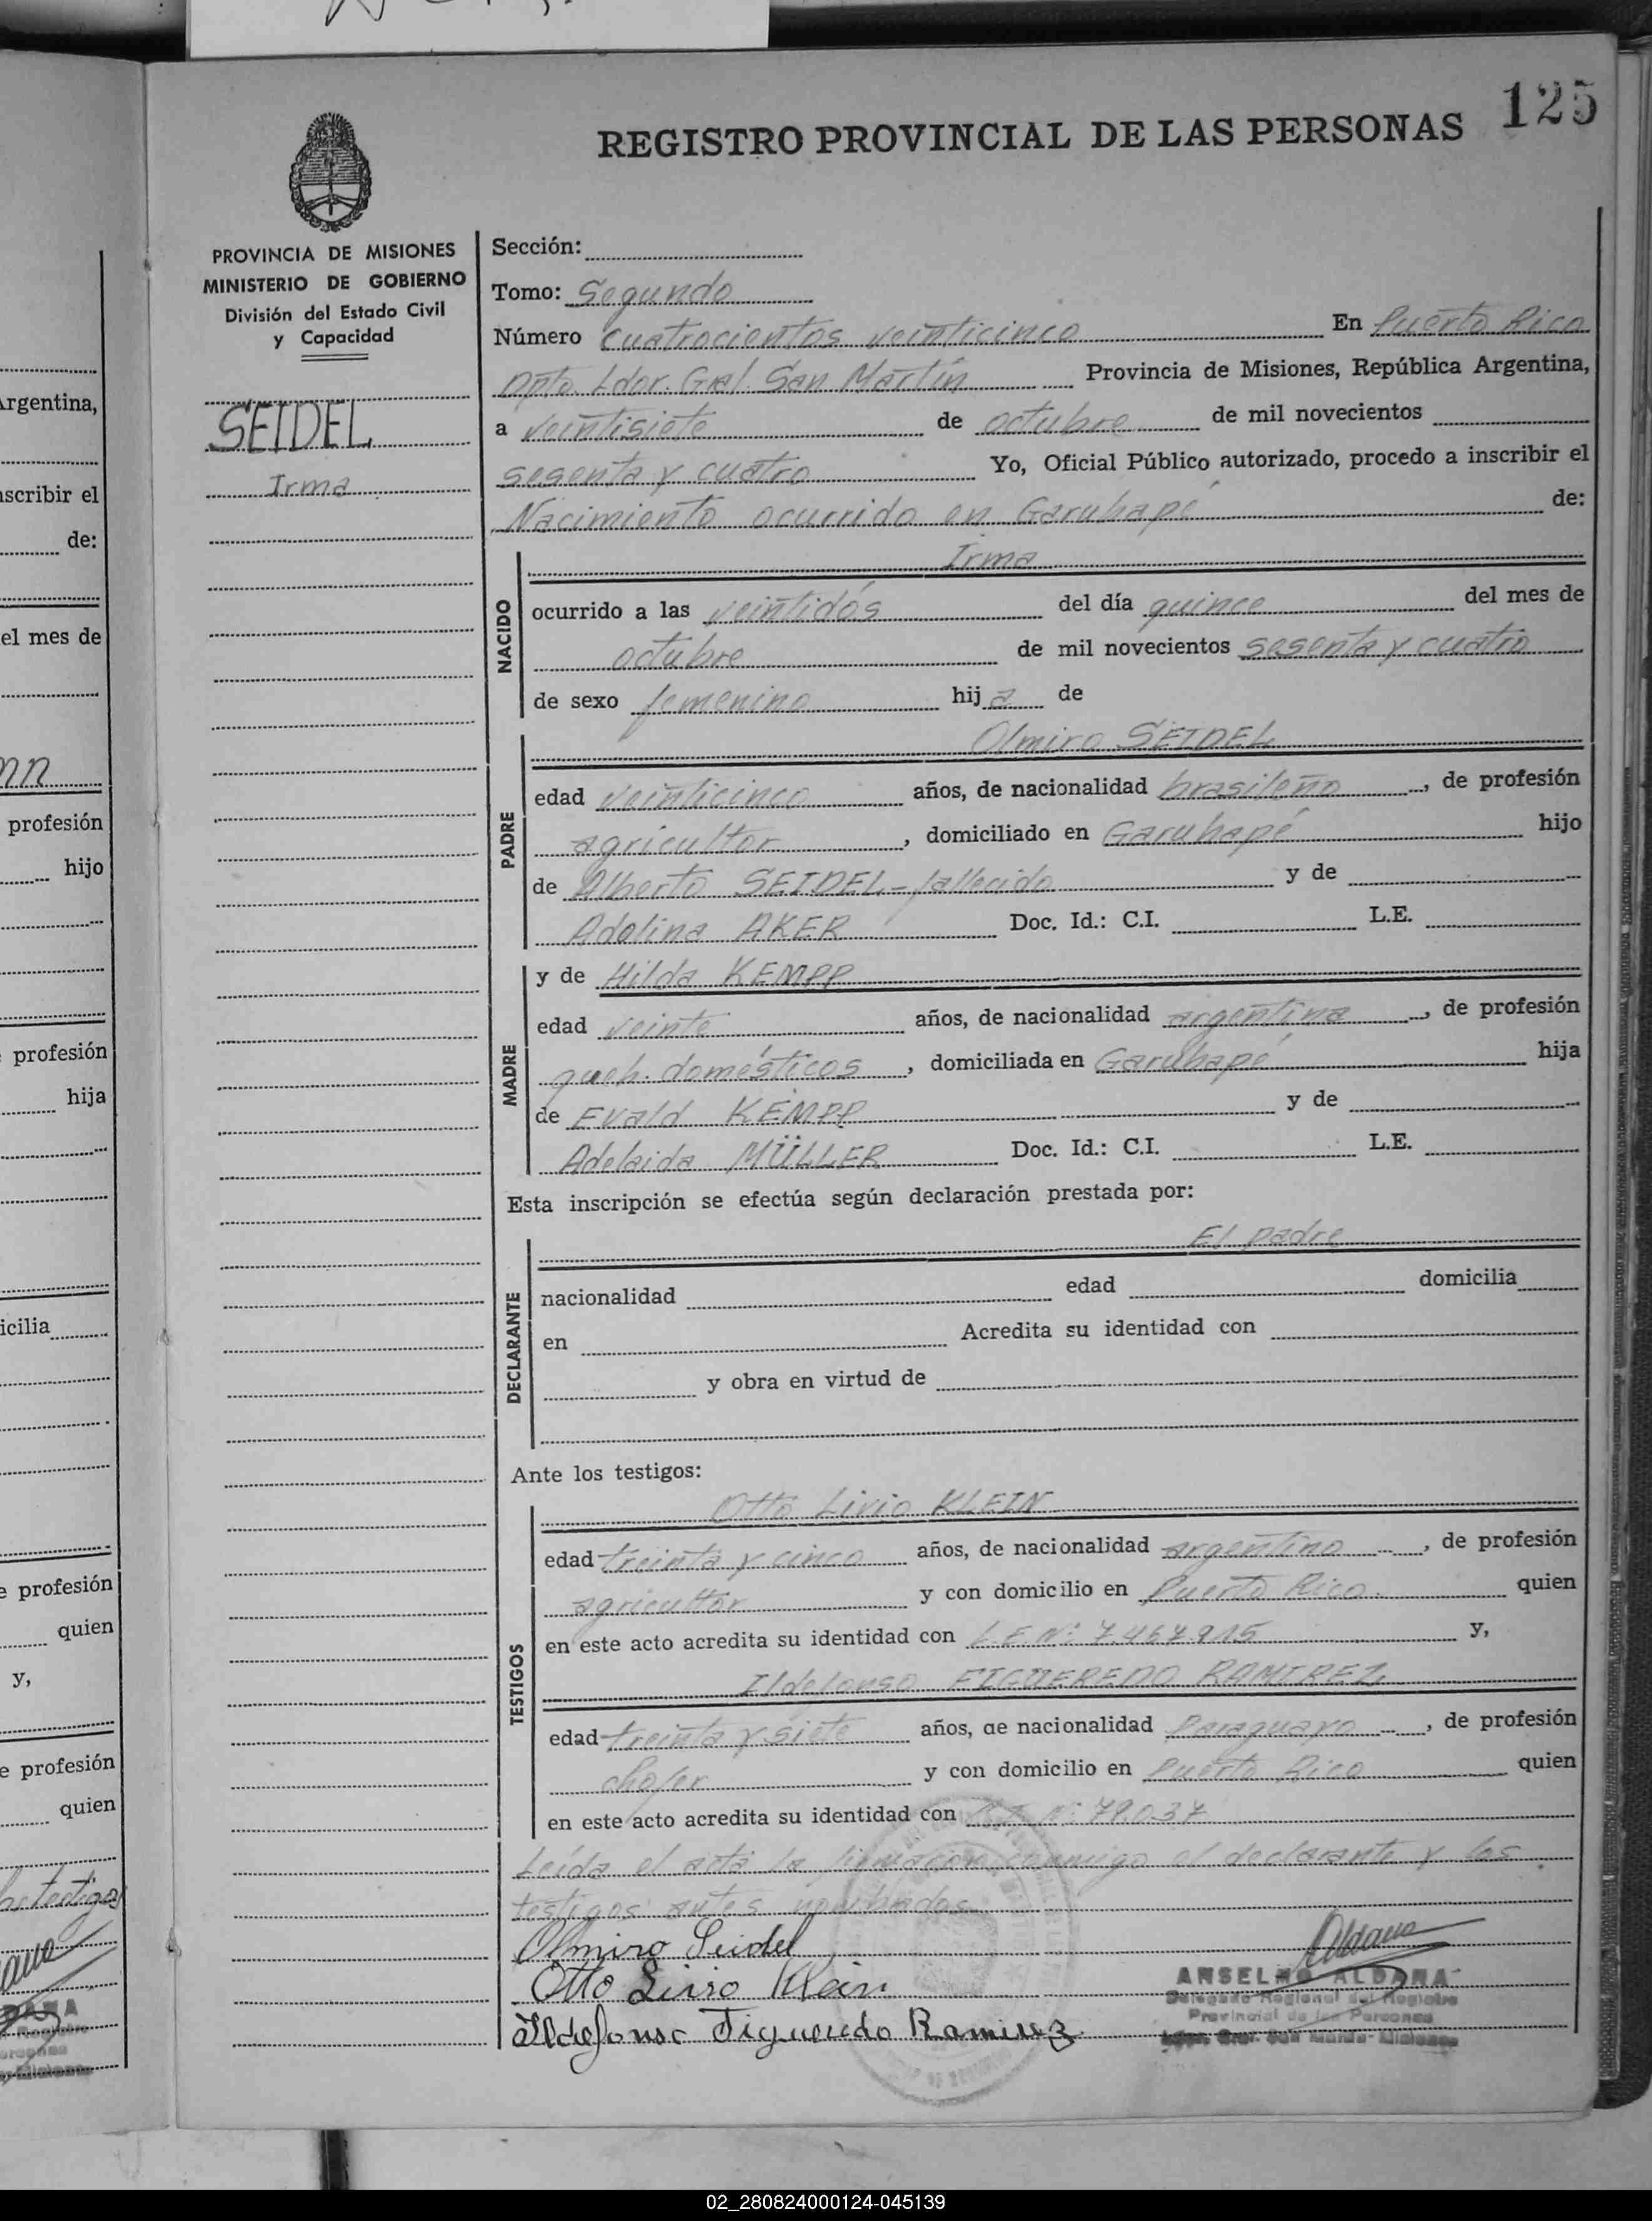 125
REGISTRO PROVINCIAL DE LAS PERSONAS
PROVINCIA DE MISIONES
MINISTERIO DE GOBIERNO
División del Estado Civil
y Capacidad
SEIDEL
Irma
Sección:
Tomo: Segundo
Número cuatrocientos veinticinco En Puerto Rico
Dpto. Ldor. Gral. San Martín Provincia de Misiones, República Argentina,
a veintisiete de octubre de mil novecientos
sesenta y cuatro Yo, Oficial Público autorizado, procedo a inscribir el
Nacimiento ocurrido en Garuhapé de:
NACIDO
Irma
ocurrido a las veintidós del día quince del mes de
octubre de mil novecientos sesenta y cuatro
de sexo femenino hija de
PADRE
Olmiro SEIDEL
edad veinticinco años, de nacionalidad brasileño, de profesión
agricultor, domiciliado en Garuhapé hijo
de Alberto SEIDEL - fallecido y de
Adolina AKER Doc. Id.: C.I. L.E.
MADRE
y de Hilda KEMPP
edad veinte años, de nacionalidad argentina, de profesión
queh. domésticos, domiciliada en Garuhapé hija
de Evald KEMPP y de
Adelaida MÜLLER Doc. Id.: C.I. L.E.
Esta inscripción se efectúa según declaración prestada por:
DECLARANTE
El padre
nacionalidad edad domicilia
en Acredita su identidad con
y obra en virtud de
Ante los testigos:
TESTIGOS
Otto Livio KLEIN
edad treinta y cinco años, de nacionalidad argentino, de profesión
agricultor y con domicilio en Puerto Rico. quien
en este acto acredita su identidad con L.E. Nº 7.467.915 y,
Ildefonso FIGUEREDO RAMIREZ
edad treinta y siete años, de nacionalidad Paraguayo, de profesión
chofer y con domicilio en Puerto Rico quien
en este acto acredita su identidad con Nº 79.037
Leída el acta la firmaron conmigo el declarante y los
testigos antes nombrados
Olmiro Seidel
Otto Livio Klein
Ildefonso Figueredo Ramirez
Aldana
ANSELMO ALDANA
Delegado Regional del Registro
Provincial de las Personas
Argentina,
inscribir el
de:
el mes de
nn
profesión
hijo
profesión
hija
icilia
e profesión
quien
y,
e profesión
quien
testigos
02_280824000124-045139